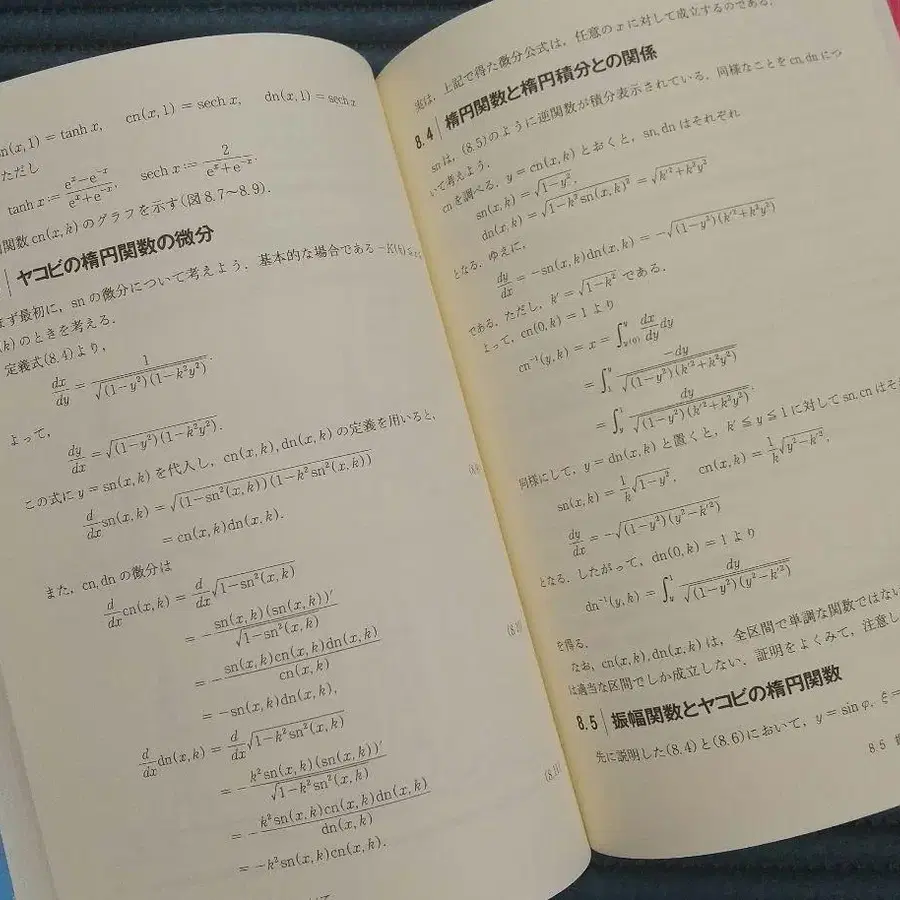 n(x, 1) = tanh x,　cn(x, 1) = sech x,　dn(x, 1) = sech x
ただし
tanh x := (e^x − e^{−x})/(e^x + e^{−x}),　sech x := 2/(e^x + e^{−x}).
関数cn(x, k)のグラフを示す(図8.7〜8.9).
ヤコビの楕円関数の微分
まず最初に, snの微分について考えよう. 基本的な場合である −K(k) ≤
(k)のときを考える.
定義式(8.4)より,
dx/dy = 1/√((1−y²)(1−k²y²)).
よって,
dy/dx = √((1−y²)(1−k²y²)).
この式に y = sn(x, k) を代入し, cn(x, k), dn(x, k) の定義を用いると,
d/dx sn(x, k) = √((1−sn²(x, k))(1−k²sn²(x, k)))
= cn(x, k)dn(x, k).
また, cn, dn の微分は
d/dx cn(x, k) = d/dx √(1−sn²(x, k))
= −sn(x, k)(sn(x, k))′/√(1−sn²(x, k))
= −sn(x, k)cn(x, k)dn(x, k)/cn(x, k)
= −sn(x, k)dn(x, k),
d/dx dn(x, k) = d/dx √(1−k²sn²(x, k))
= −k²sn(x, k)(sn(x, k))′/√(1−k²sn²(x, k))
= −k²sn(x, k)cn(x, k)dn(x, k)/dn(x, k)
= −k²sn(x, k)cn(x, k).
実は, 上記で得た微分公式は, 任意の x に対して成立するのである.
8.4 楕円関数と楕円積分との関係
snは, (8.5)のように逆関数が積分表示されている. 同様なことをcn, dnにつ
いて考えよう.
cnを調べる. y = cn(x, k) とおくと, sn, dn はそれぞれ
sn(x, k) = √(1−y²),
dn(x, k) = √(1−k²sn(x, k)²) = √(k′²+k²y²)
となる. ゆえに,
dy/dx = −sn(x, k)dn(x, k) = −√((1−y²)(k′²+k²y²))
である. ただし, k′ = √(1−k²) である.
よって, cn(0, k) = 1 より
cn⁻¹(y, k) = x = ∫_{y(0)}^{y} dx/dy dy
= ∫_1^y −dy/√((1−y²)(k′²+k²y²))
= ∫_y^1 dy/√((1−y²)(k′²+k²y²)).
同様にして, y = dn(x, k) と置くと, k′ ≦ y ≦ 1 に対して sn, cn はそ
sn(x, k) = 1/k √(1−y²),　cn(x, k) = 1/k √(y²−k′²),
dy/dx = −√((1−y²)(y²−k′²))
となる. したがって, dn(0, k) = 1 より
dn⁻¹(y, k) = ∫_y^1 dy/√((1−y²)(y²−k′²))
を得る.
なお, cn(x, k), dn(x, k) は, 全区間で単調な関数ではない
は適当な区間でしか成立しない. 証明をよくみて, 注意し
8.5 振幅関数とヤコビの楕円関数
先に説明した(8.4)と(8.6)において, y = sin φ, ξ =
8.5